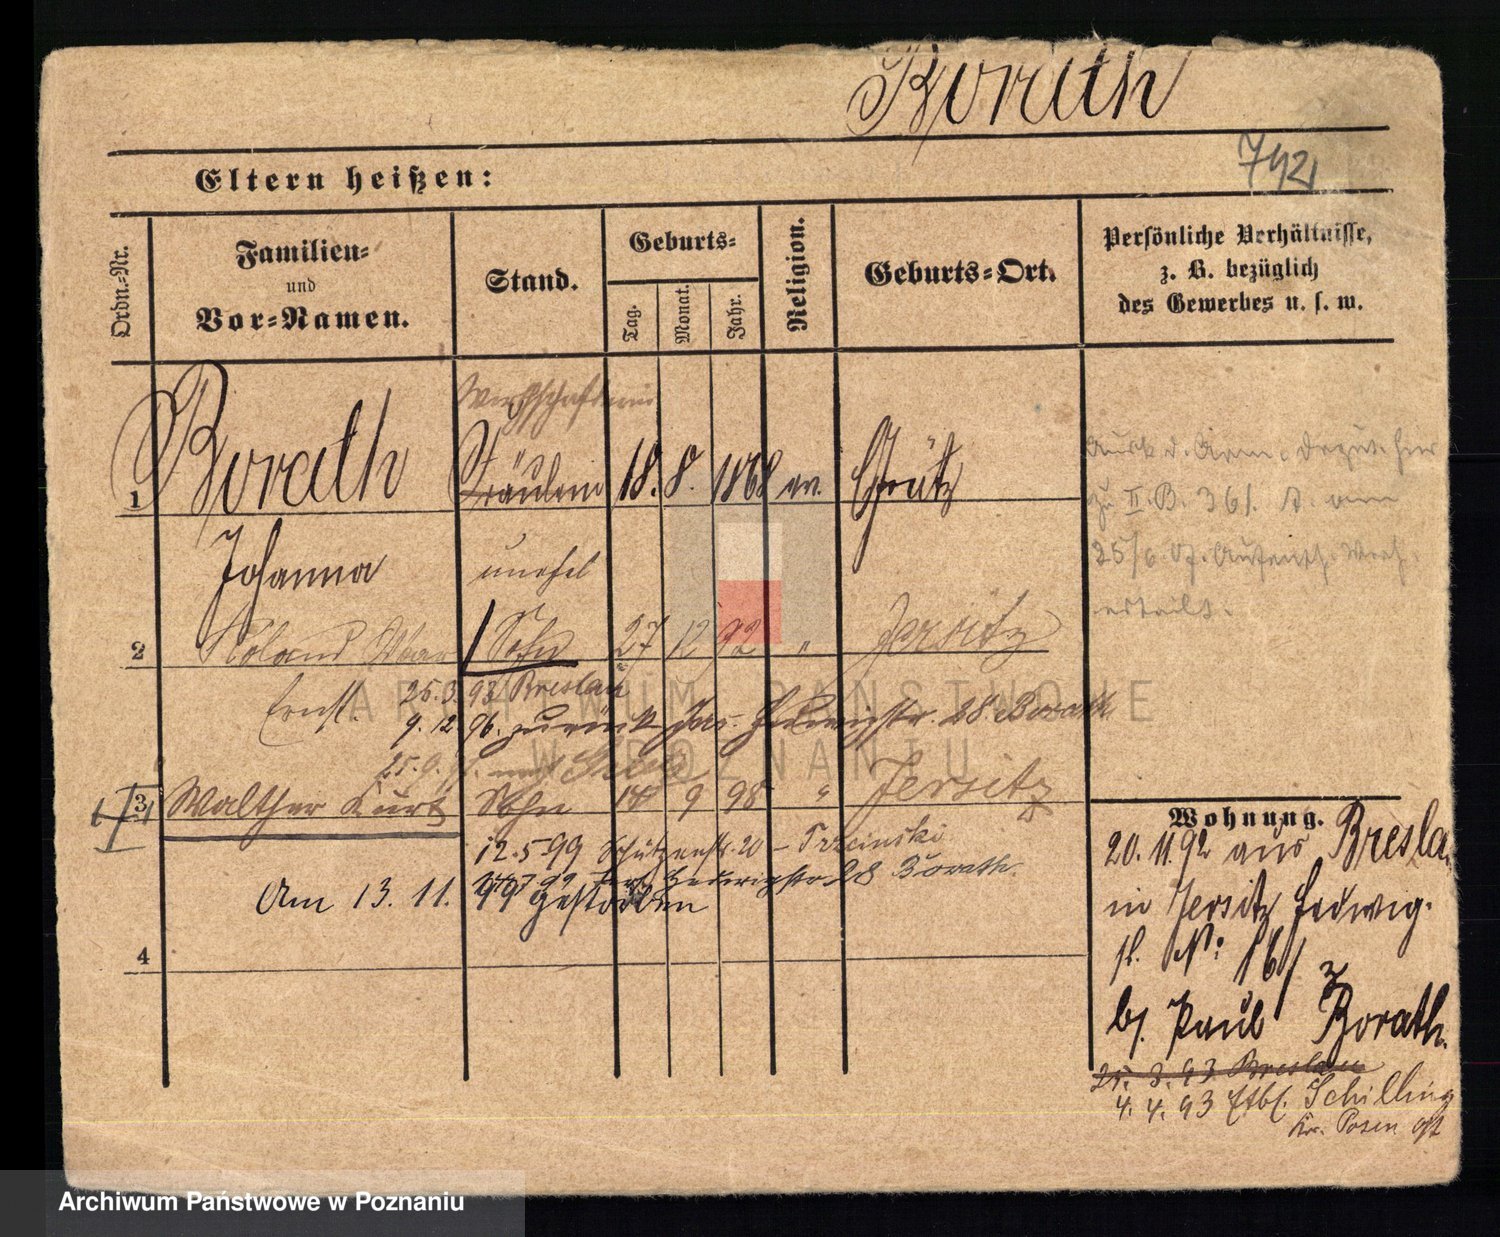 Borath
Eltern heißen:
742
Ordn.-Nr.
Familien-
und
Vor-Namen.
Stand.
Geburts-
Tag.
Monat.
Jahr.
Religion.
Geburts-Ort.
Persönliche Verhältnisse,
z. B. bezüglich
des Gewerbes u. s. w.
Wirthschafterin
1 Borath Fräulein 18. 8. 1868 ev. Grätz
Johanna unehel
2 Roland Sohn 27 12 92 " Jersitz
Ernst. 25.3.93 Breslau
9.12.96. zurück Jers. Hedwigstr. 28. Borath
25.9.
3 Walther Kurt Sohn 14 9 98 " Jersitz
12.5.99 Schützenstr. 20 - Trzcinski
99 Jers. Hedwigstr 28 Borath.
Am 13. 11. 99 gestorben
4
zu II. B. 361.
25/6. 07. Aufenth.
erteilt.
Wohnung.
20.11.92 aus Breslau
in Jersitz Hedwig-
st. No: 16/
b/. Paul Borath.
25. 3. 93 Breslau
4. 4. 93 Schilling
Kr. Posen Ost
ARCHIWUM PAŃSTWOWE
W POZNANIU
Archiwum Państwowe w Poznaniu